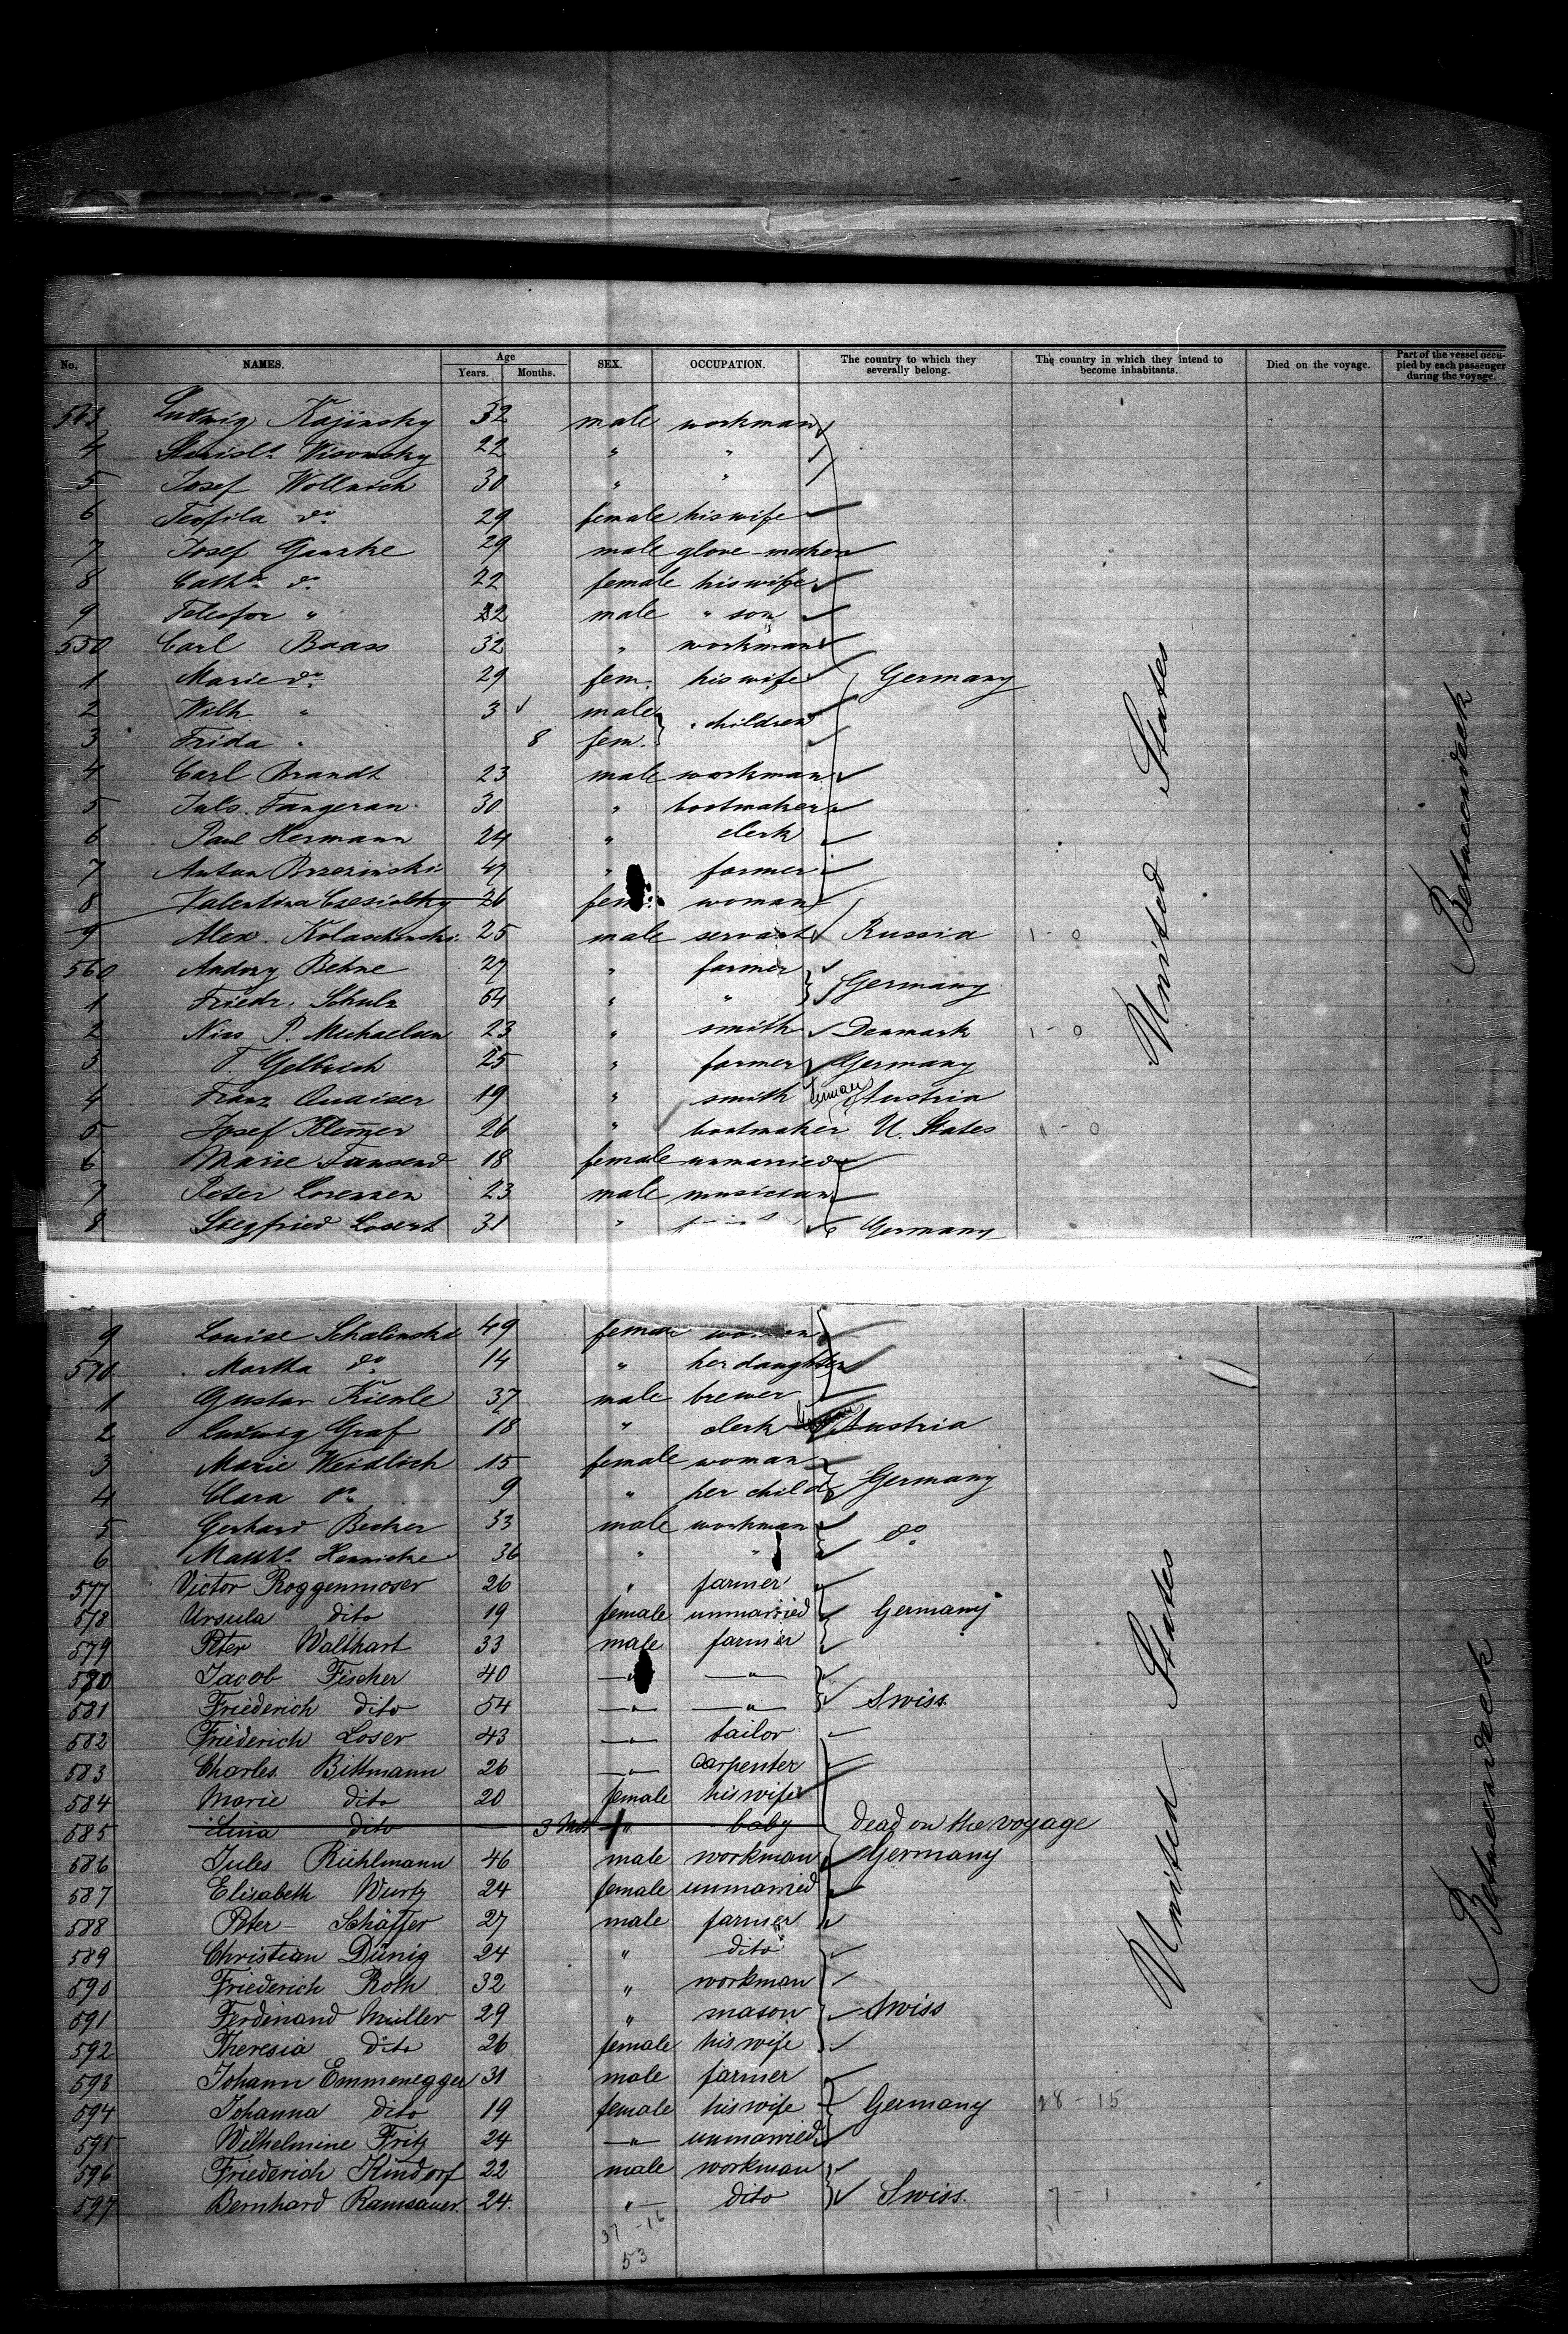 No. NAMES. Age Years. Months. SEX. OCCUPATION. The country to which they severally belong. The country in which they intend to become inhabitants. Died on the voyage. Part of the vessel occupied by each passenger during the voyage.
543 Ludwig Kajinsky 32 male workman
4 Stanisls. Wisowsky 22 " "
5 Josef Wollnick 30 " "
6 Teofila do 29 female his wife
7 Josef Guzke 29 male glove-maker
8 Cath. do 22 female his wife
9 Telesfor " 22 male " son
550 Carl Baass 32 " workman
1 Marie do 29 fem. his wife Germany
2 Wilh. " 3 male children
3 Frida " 8 fem.
4 Carl Brandt 23 male workman
5 Juls. Tangeran 30 " bootmaker
6 Paul Hermann 24 " clerk
7 Anton Brzezinski 47 " farmer
8 Valentina 26 fem. woman
9 Alex. Kolaschinski 25 male servant Russia 1-0
560 Andory Behne 27 " farmer
1 Friedr. Schulz 64 " " Germany
2 Niss P. Michaelsen 23 " smith Denmark 1-0
3 T. Gelbrich 25 " farmer Germany
4 Franz Quaiser 19 " smith German Austria
5 Josef Klemzer 26 " bootmaker U. States 1-0
6 Marie Tausend 18 female unmarried
7 Peter Lorenzen 23 male musician
8 Siegfried Losert 31 " Germany
United States
Betweendeck
9 Louise Schalinska 49 female woman
570 Martha do 14 " her daughter
1 Gustav Kienle 37 male brewer
2 Ludwig Graf 18 " clerk Austria
3 Marie Weidlich 15 female woman
4 Clara do 9 " her child Germany
5 Gerhard Becker 33 male workman do
6 Matths. Hennicke 36 " "
577 Victor Roggenmoser 26 " farmer
578 Ursula dito 19 female unmarried Germany
579 Peter Walthart 33 male farmer
580 Jacob Fischer 40 " "
581 Friederich dito 54 " " Swiss
582 Friederich Loser 43 " tailor
583 Charles Bittmann 26 " carpenter
584 Marie dito 20 female his wife
585 Lina dito 3 Mos " baby dead on the voyage
586 Jules Riehlmann 46 male workman Germany
587 Elisabeth Wurtz 24 female unmarried
588 Peter Schäffer 27 male farmer
589 Christian Dünig 24 " dito
590 Friederich Roth 32 " workman
591 Ferdinand Müller 29 " mason Swiss
592 Theresia dito 26 female his wife
593 Johann Emmenegger 31 male farmer
594 Johanna dito 19 female his wife Germany 28-15
595 Wilhelmine Fritz 24 " unmarried
596 Friederich Kindorf 22 male workman
597 Bernhard Ramsauer 24. " dito Swiss. 7-1
37-16
53
United States
Betweendeck